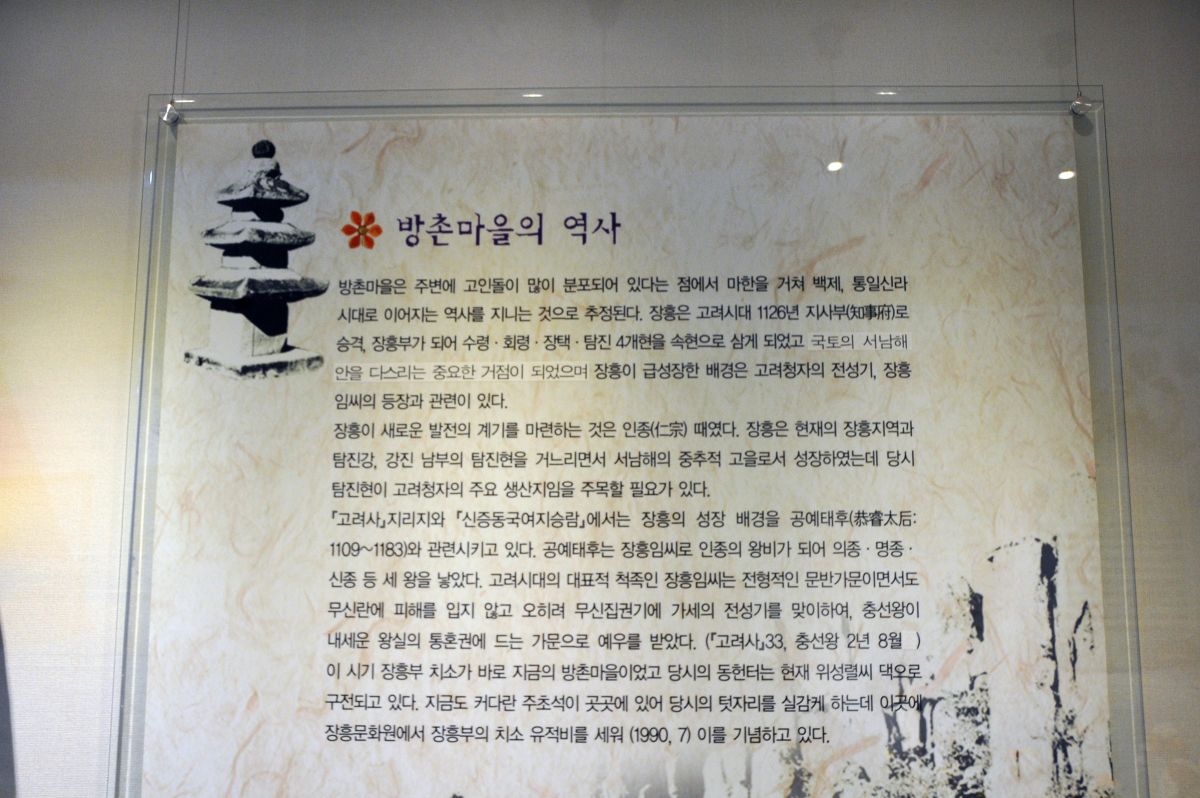 방촌마을의 역사
방촌마을은 주변에 고인돌이 많이 분포되어 있다는 점에서 마한을 거쳐 백제, 통일신라
시대로 이어지는 역사를 지니는 것으로 추정된다. 장흥은 고려시대 1126년 지사부(知事府)로
승격, 장흥부가 되어 수령·회령·장택·탐진 4개현을 속현으로 삼게 되었고 국토의 서남해
안을 다스리는 중요한 거점이 되었으며 장흥이 급성장한 배경은 고려청자의 전성기, 장흥
임씨의 등장과 관련이 있다.
장흥이 새로운 발전의 계기를 마련하는 것은 인종(仁宗) 때였다. 장흥은 현재의 장흥지역과
탐진강, 강진 남부의 탐진현을 거느리면서 서남해의 중추적 고을로서 성장하였는데 당시
탐진현이 고려청자의 주요 생산지임을 주목할 필요가 있다.
『고려사』지리지와 『신증동국여지승람』에서는 장흥의 성장 배경을 공예태후(恭睿太后:
1109~1183)와 관련시키고 있다. 공예태후는 장흥임씨로 인종의 왕비가 되어 의종·명종·
신종 등 세 왕을 낳았다. 고려시대의 대표적 척족인 장흥임씨는 전형적인 문반가문이면서도
무신란에 피해를 입지 않고 오히려 무신집권기에 가세의 전성기를 맞이하여, 충선왕이
내세운 왕실의 통혼권에 드는 가문으로 예우를 받았다. (『고려사』33, 충선왕 2년 8월 )
이 시기 장흥부 치소가 바로 지금의 방촌마을이었고 당시의 동헌터는 현재 위성렬씨 댁으로
구전되고 있다. 지금도 커다란 주초석이 곳곳에 있어 당시의 텃자리를 실감케 하는데 이곳에
장흥문화원에서 장흥부의 치소 유적비를 세워 (1990, 7) 이를 기념하고 있다.